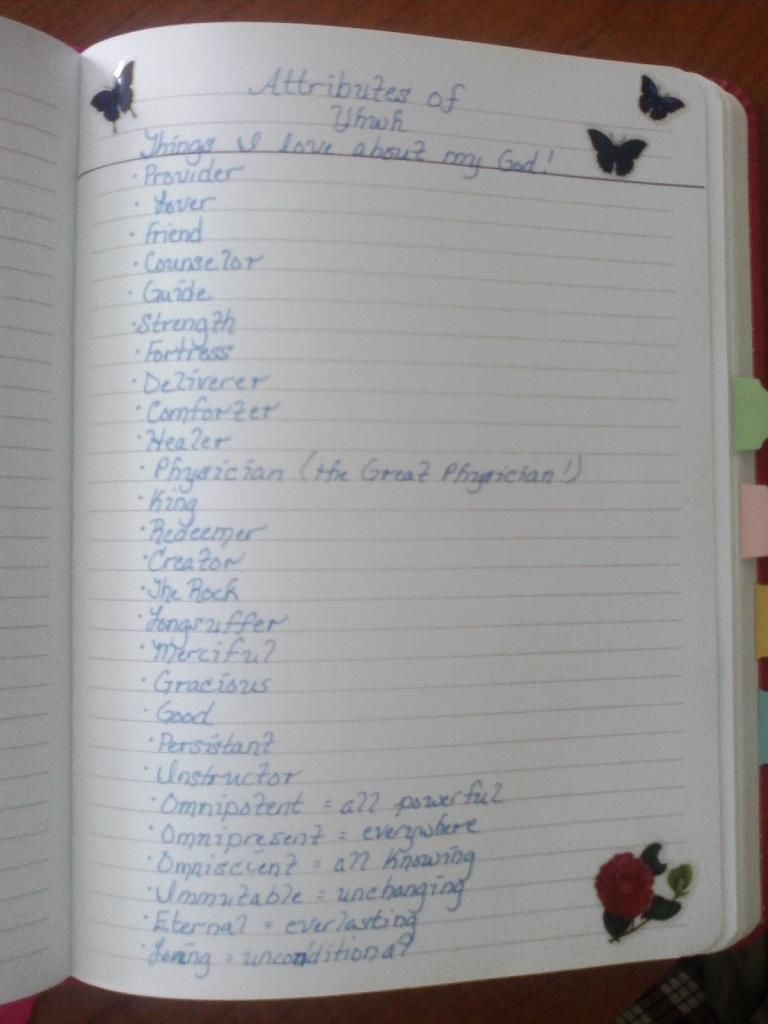 Attributes of
Yhwh
Things I love about my God!
· Provider
· Lover
· Friend
· Counselor
· Guide
· Strength
· Fortress
· Deliverer
· Comforter
· Healer
· Physician (the Great Physician!)
· King
· Redeemer
· Creator
· The Rock
· Longsuffer
· Merciful
· Gracious
· Good
· Persistant
· Instructor
· Omnipotent = all powerful
· Omnipresent = everywhere
· Omniscient = all knowing
· Immutable = unchanging
· Eternal = everlasting
· Loving = unconditional